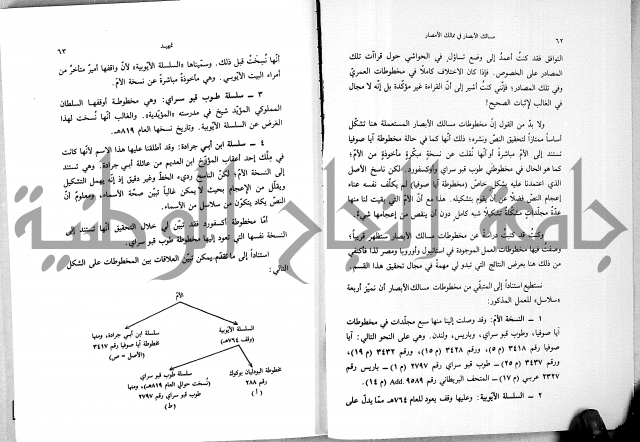 ٦٢
مسالك الأبصار في ممالك الأمصار
التوافق فقد كنتُ أعمدُ إلى وضع تساؤل في الحواشي حول قراءآت تلك
المصادر على الخصوص. فإذا كان الاختلاف كاملًا في مخطوطات العمريّ
وفي تلك المصادر؛ فإنّي كنت أشير إلى أنّ القراءة غير مؤكّدة بل إنّه لا مجال
في الغالب لإثبات الصحيح!
ولا بدّ من القول إنّ مخطوطات مسالك الأبصار المستعملة هنا تشكّل
أساساً ممتازاً لتحقيق النصّ ونشره؛ ذلك أنّها كما في حالة مخطوطة أيا صوفيا
تستند إلى الأمّ مباشرةً أو أنّها نُقلت عن نسخةٍ مبكّرةٍ مأخوذةٍ من الأمّ؛
كما هو الحال في مخطوطتي طوب قبو سراي وأكسفورد. لكن ناسخ الأصل
الذي اعتمدنا عليه بشكلٍ خاصّ (مخطوطة أيا صوفيا) لم يكلّف نفسه عناء
إعجام النصّ فضلًا عن أن يقوم بتشكيله. هذا مع أنّ الأمّ التي بقيت لنا منها
عدّة مجلّداتٍ مشكّلة تشكيلًا شبه كامل دون أن ينقص من إعجامها شيء.
وقد كتبتُ دراسةً عن مخطوطات مسالك الأبصار ستظهر قريباً؛
وصفتُ فيها مخطوطات العمل الموجودة في استانبول وأوروبا ومصر لذا فأكتفي
من ذلك هنا بعرض النتائج التي تبدو لي مهمةً في مجال تحقيق هذا القسم.
نستطيع استناداً إلى المتبقّي من مخطوطات مسالك الأبصار أن نميّز أربعة
«سلاسل» للعمل المذكور:
١ - النسخة الأمّ: وقد وصلت إلينا منها سبع مجلّدات في مخطوطات
أيا صوفيا، وطوب قبو سراي، وباريس، ولندن. وهي على النحو التالي: أيا
صوفيا رقم ٣٤١٨ (م ٥)، ورقم ٣٤٢٨ (م ١٥)، ورقم ٣٤٣٢ (م ١٩)،
ورقم ٣٤٣٧ (م ٢٥) - طوب قبو سراي رقم ٢٧٩٧ (م ١) - باريس رقم
٢٣٢٧ عربي (م ١٧) - المتحف البريطاني رقم Add. 9589 (م ١٤).
٢ - السلسلة الأيّوبية: وعليها وقف يعود للعام ٧٦٤هـ ممّا يدلّ على
تمهيد
٦٣
أنّها نُسِخَتْ قبل ذلك. وسمّيناها «السلسلة الأيّوبية» لأنّ واقفها أميرٌ متأخّرٌ من
أمراء البيت الأيّوبي. وهي مأخوذةٌ مباشرةً عن نسخة الأمّ.
٣ - سلسلة طوب قبو سراي: وهي مخطوطة أوقفها السلطان
المملوكي المؤيّد شيخ في مدرسته «المؤيّدية». والغالب أنّها نُسخت لهذا
الغرض عن السلسلة الأيّوبية. وتاريخ نسخها العام ٨١٩هـ.
٤ - سلسلة ابن أبي جرادة: وقد أطلقنا عليها هذا الاسم لأنّها كانت
في مِلْك أحد أعقاب المؤرّخ ابن العديم من عائلة أبي جرادة. وهي تستند
إلى النسخة الأمّ؛ لكنّ الناسخ رديء الخطّ وغير دقيق إذ إنّه يهمل التشكيل
ويقلّل من الإعجام بحيث لا يمكن غالباً تبيّن صحّة الأسماء. ومعلومٌ أنّ
النصّ يكاد يتكوّن من سلاسل من الأسماء.
أمّا مخطوطة أكسفورد فقد تبيّن لي خلال التحقيق أنّها تستند إلى
النسخة نفسها التي تعود إليها مخطوطة طوب قبو سراي.
استناداً إلى ما تقدّم يمكن تبيّن العلاقات بين المخطوطات على الشكل
التالي:
الأمّ
السلسلة الأيّوبية
(وقف ٧٦٤هـ)
سلسلة ابن أبي جرادة، ومنها
مخطوطة أيا صوفيا رقم ٣٤١٧
(الأصل = ص)
مخطوطة البودليان بوكوك
رقم ٢٨٨
(أ)
سلسلة طوب قبو سراي
(نُسخت حوالي العام ٨١٩هـ)، ومنها
طوب قبو سراي رقم ٢٧٩٧
(ط)
جامعة النجاح الوطنية